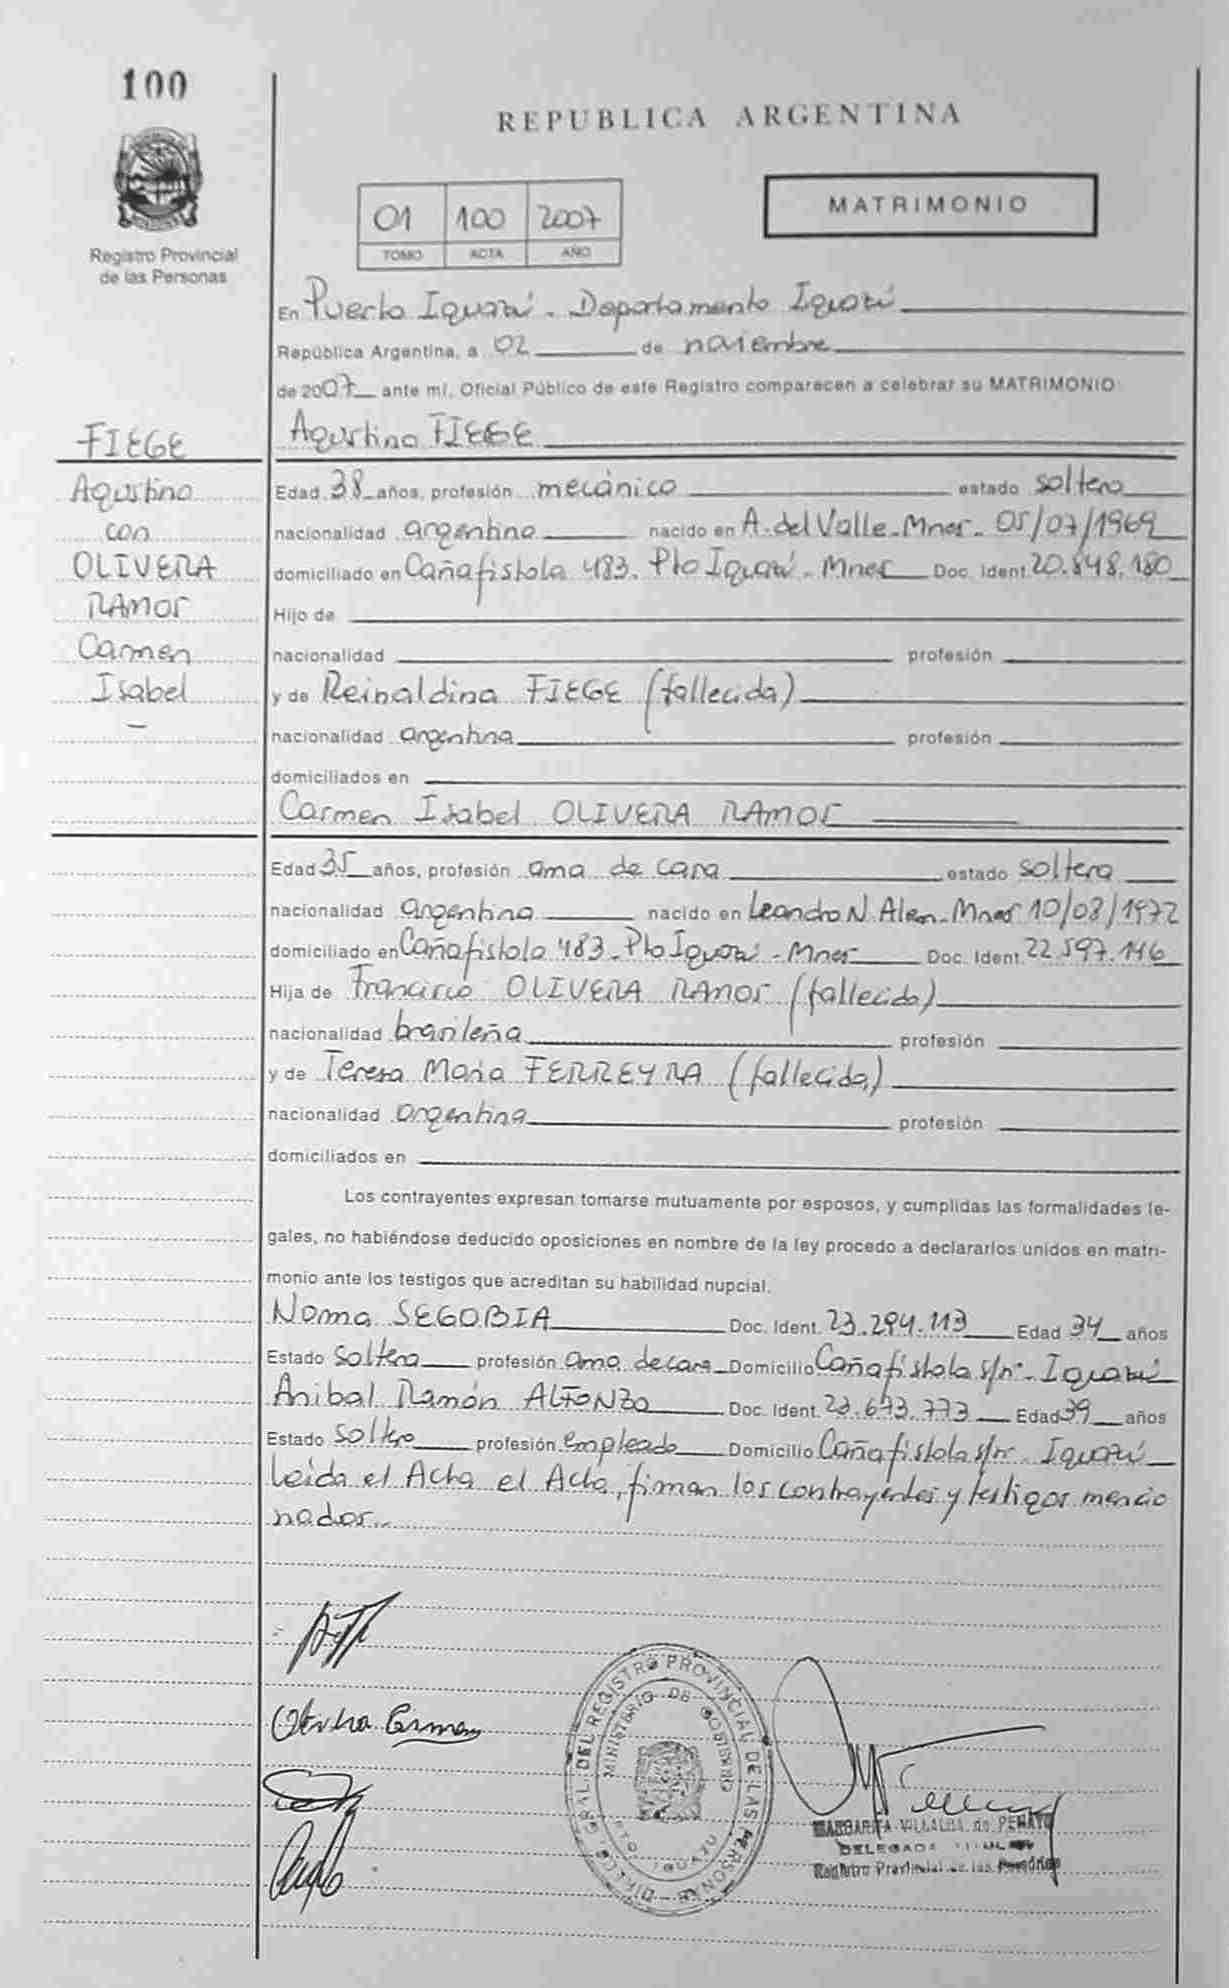 100
REPUBLICA ARGENTINA
Registro Provincial
de las Personas
01 100 2007
TOMO ACTA AÑO
MATRIMONIO
En Puerto Iguazú - Departamento Iguazú
República Argentina, a 02 de noviembre
de 2007 ante mí, Oficial Público de este Registro comparecen a celebrar su MATRIMONIO
FIEGE
Agustino
con
OLIVERA
RAMOS
Carmen
Isabel
Agustino FIEGE
Edad 38 años, profesión mecánico estado soltero
nacionalidad argentino nacido en A. del Valle - Mnes - 05/07/1969
domiciliado en Cañafistola 483. Pto Iguazú - Mnes Doc. Ident. 20.848.180
Hijo de
nacionalidad profesión
y de Reinaldina FIEGE (fallecida)
nacionalidad argentina profesión
domiciliados en
Carmen Isabel OLIVERA RAMOS
Edad 35 años, profesión ama de casa estado soltera
nacionalidad argentina nacido en Leandro N. Alem - Mnes 10/08/1972
domiciliado en Cañafistola 483 - Pto Iguazú - Mnes Doc. Ident. 22.597.146
Hija de Francisco OLIVERA RAMOS (fallecido)
nacionalidad brasileña profesión
y de Teresa María FERREYRA (fallecida)
nacionalidad argentina profesión
domiciliados en
Los contrayentes expresan tomarse mutuamente por esposos, y cumplidas las formalidades le-
gales, no habiéndose deducido oposiciones en nombre de la ley procedo a declararlos unidos en matri-
monio ante los testigos que acreditan su habilidad nupcial.
Norma SEGOBIA Doc. Ident. 23.294.113 Edad 34 años
Estado soltera profesión ama de casa Domicilio Cañafistola s/nº - Iguazú
Anibal Ramón ALFONZO Doc. Ident. 23.673.773 Edad 39 años
Estado soltero profesión empleado Domicilio Cañafistola s/nº Iguazú
Leída el Acta el Acta, firman los contrayentes y testigos mencio
nados..
Olivera Carmen
DIRECC. GRAL. DEL REGISTRO PROVINCIAL DE LAS PERSONAS
MINISTERIO DE GOBIERNO
PTO IGUAZU
MARGARITA VILLALBA de PERAYO
DELEGADA TITULAR
Registro Provincial de las Personas